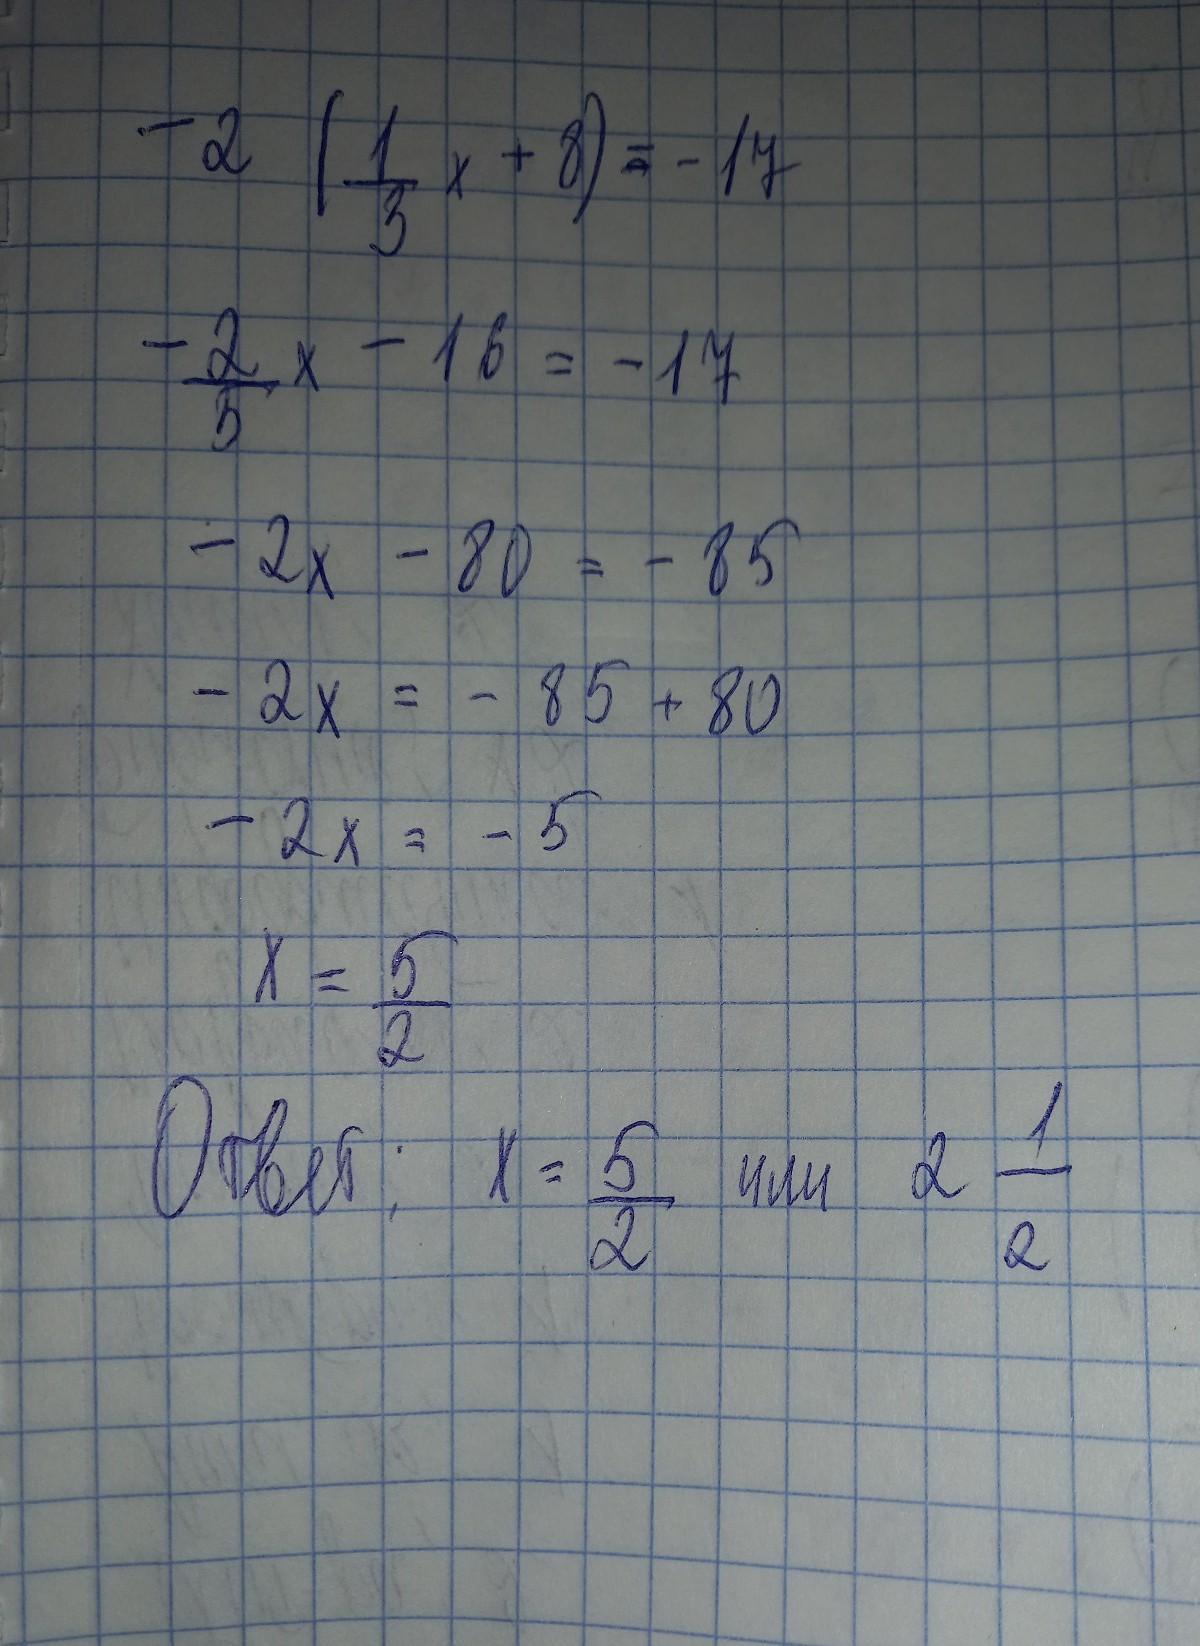 -2 (1/3 x + 8) = -17
-2/5 x - 16 = -17
-2x - 80 = -85
-2x = -85 + 80
-2x = -5
x = 5/2
Ответ: x = 5/2 или 2 1/2